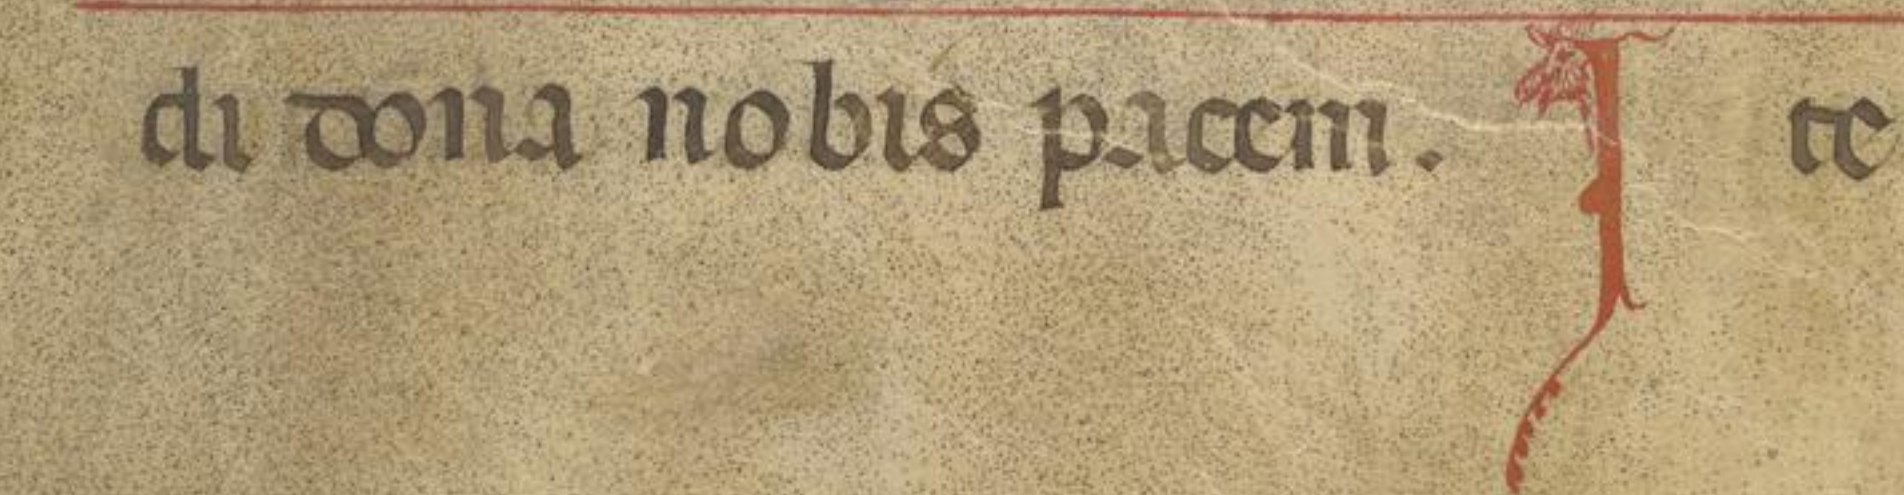 di dona nobis pacem. I te